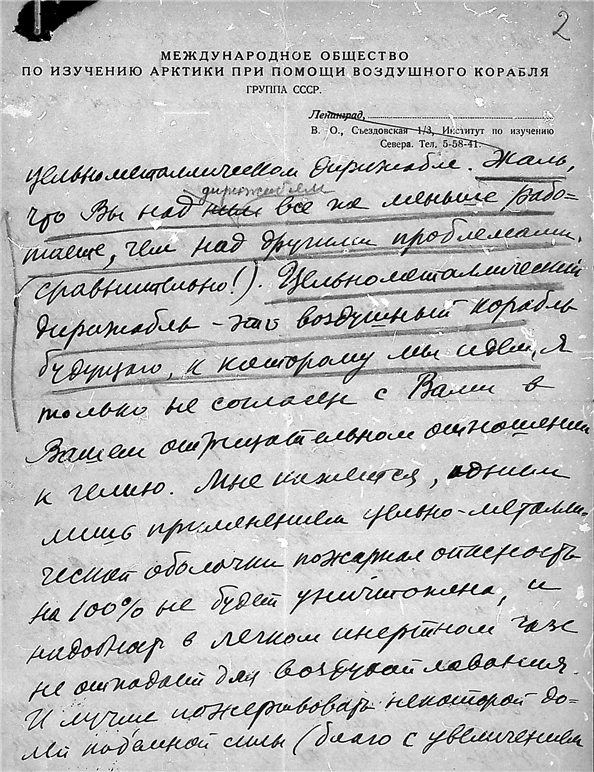 2
МЕЖДУНАРОДНОЕ ОБЩЕСТВО
ПО ИЗУЧЕНИЮ АРКТИКИ ПРИ ПОМОЩИ ВОЗДУШНОГО КОРАБЛЯ
ГРУППА СССР.
Ленинград,
В. О., Съездовская 1/3, Институт по изучению
Севера. Тел. 5-58-41.
цельнометаллическом дирижабле. Жаль,
дирижаблем
что Вы над ним все же меньше рабо-
таете, чем над другими проблемами.
(сравнительно!). Цельнометаллический
дирижабль - это воздушный корабль
будущего, к которому мы идем, я
только не согласен с Вами в
Вашем отрицательном отношении
к гелию. Мне кажется, одним
лишь применением цельно-металли-
ческой оболочки пожарная опасность
на 100% не будет уничтожена, и
надобность в легком инертном газе
не отпадает для воздухоплавания.
И лучше пожертвовать некоторой до-
лей подъемной силы (благо с увеличением